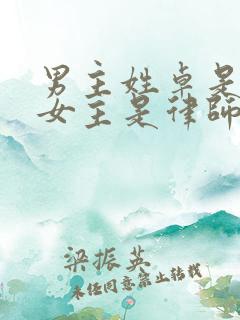 男主姓卓是
女主是律師
梁振英
未经同意禁止转载